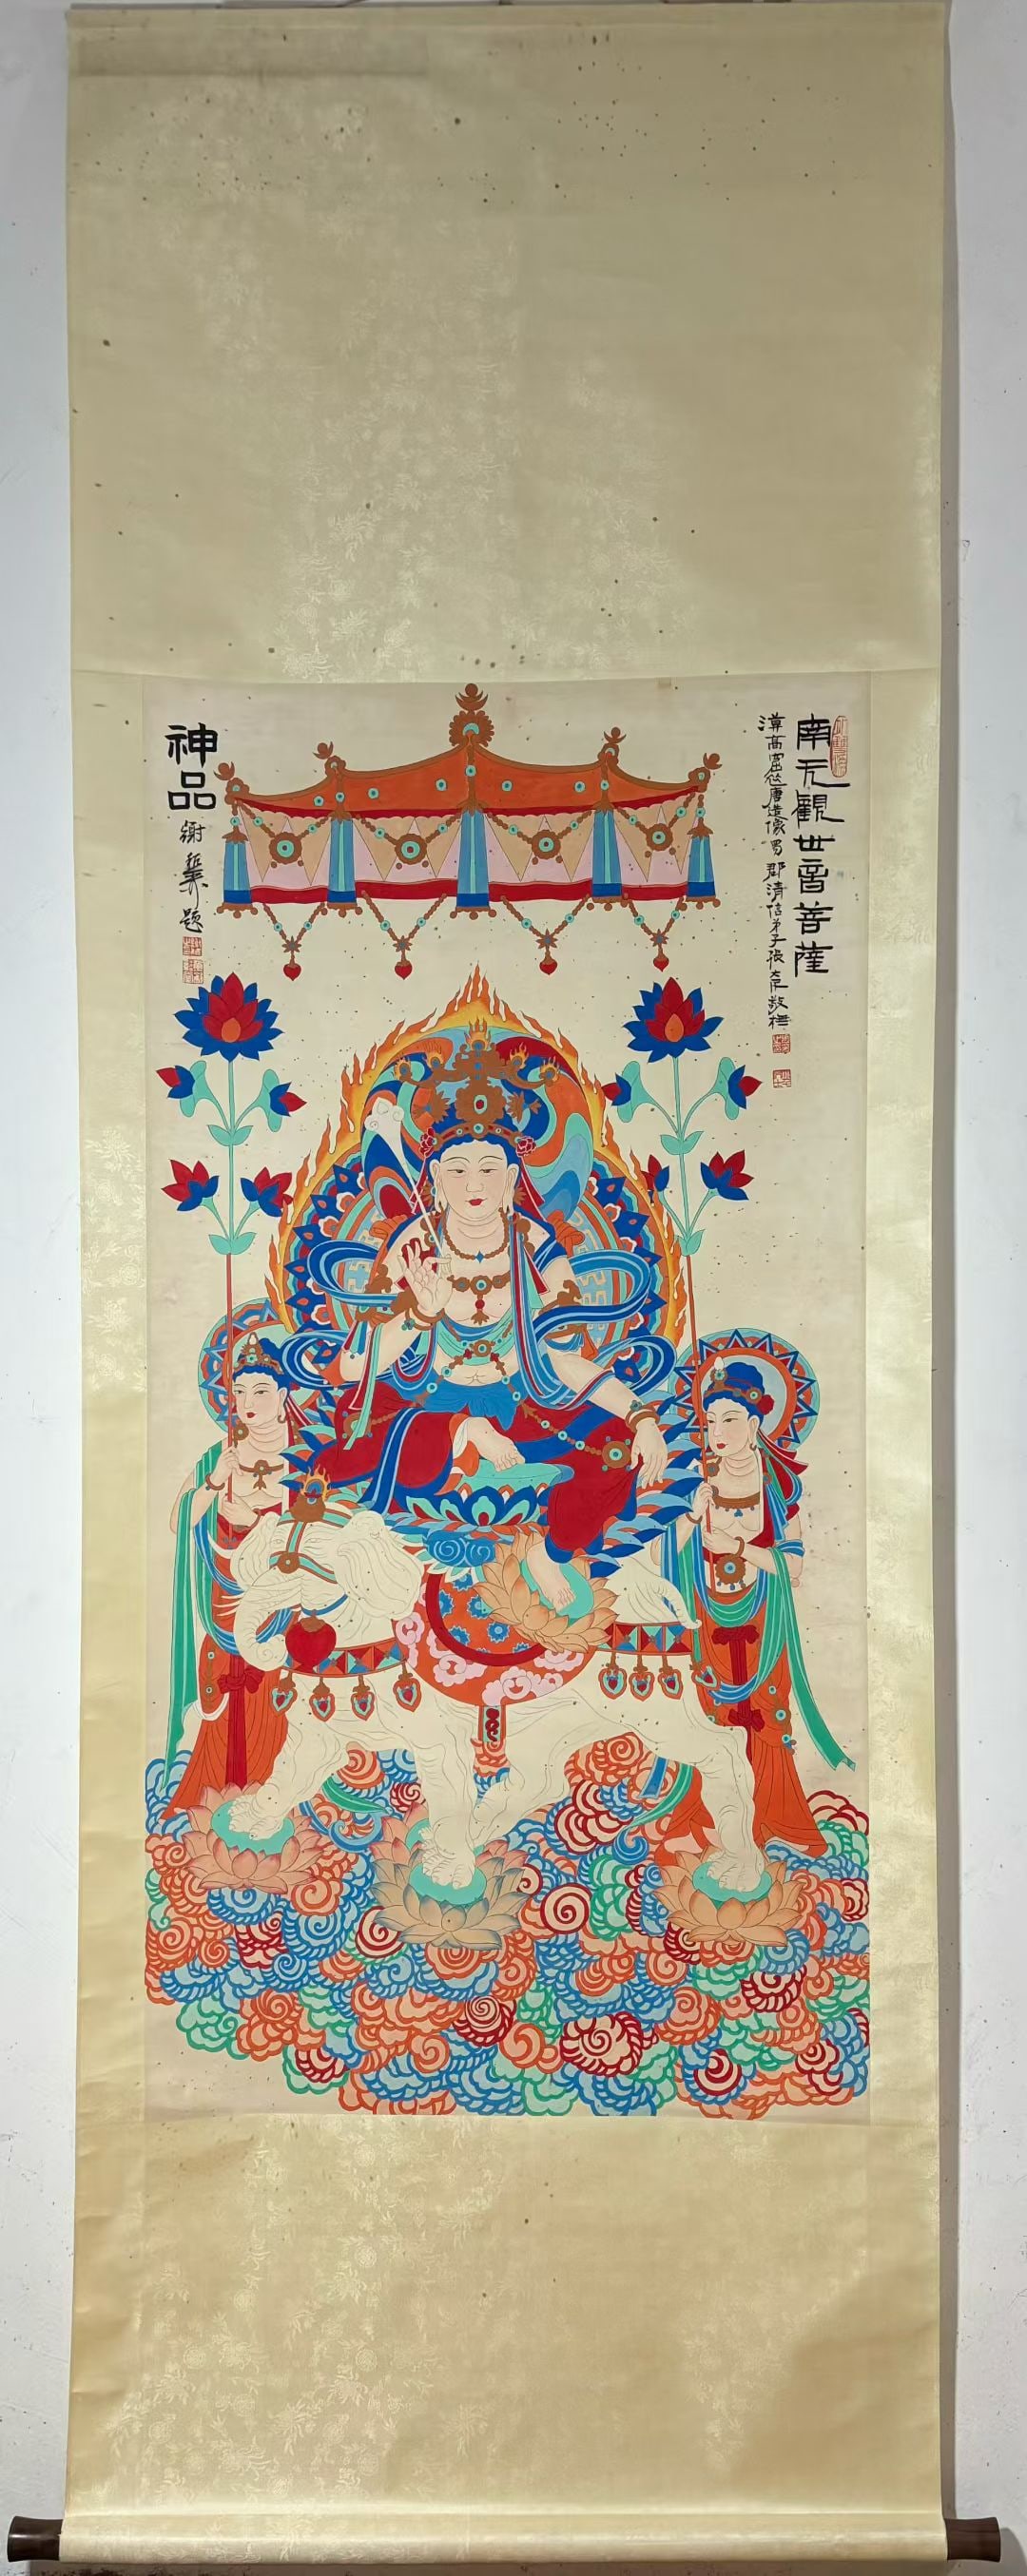 南无觀世音菩薩
漠高窟盛唐造像蜀郡清信弟子張大千敬橅
神品
謝稚柳題